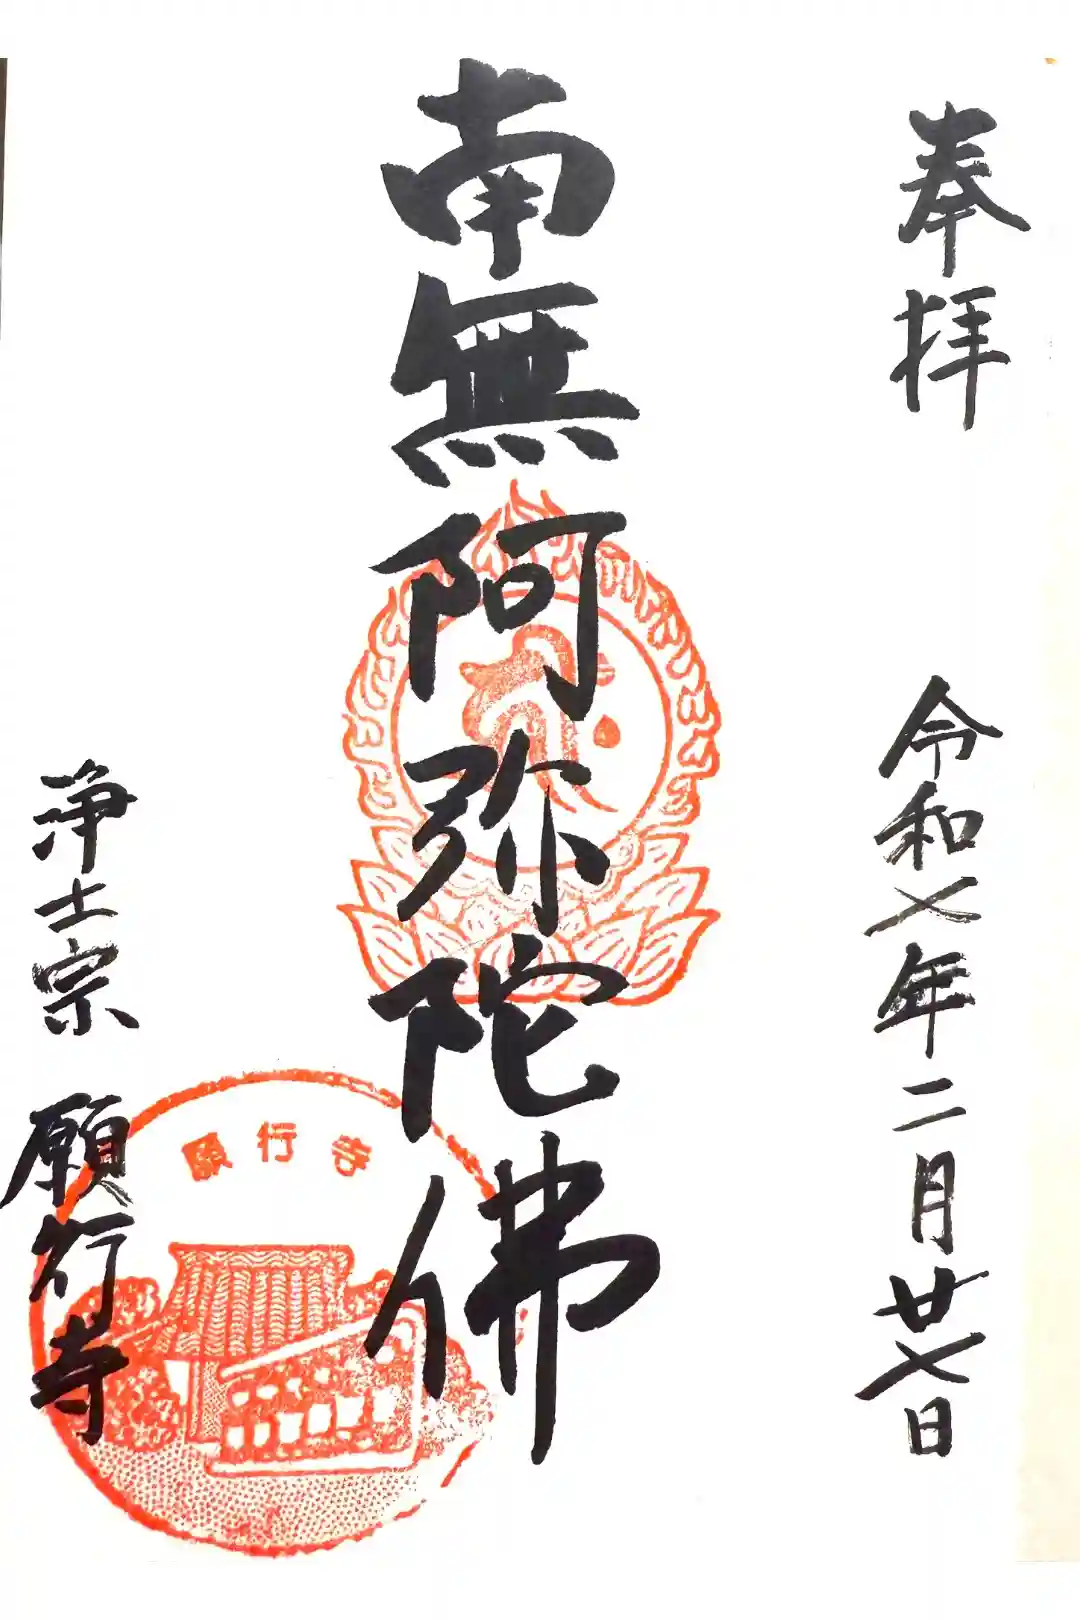 奉拝
令和七年二月廿七日
南無阿弥陀佛
浄土宗 願行寺
願行寺